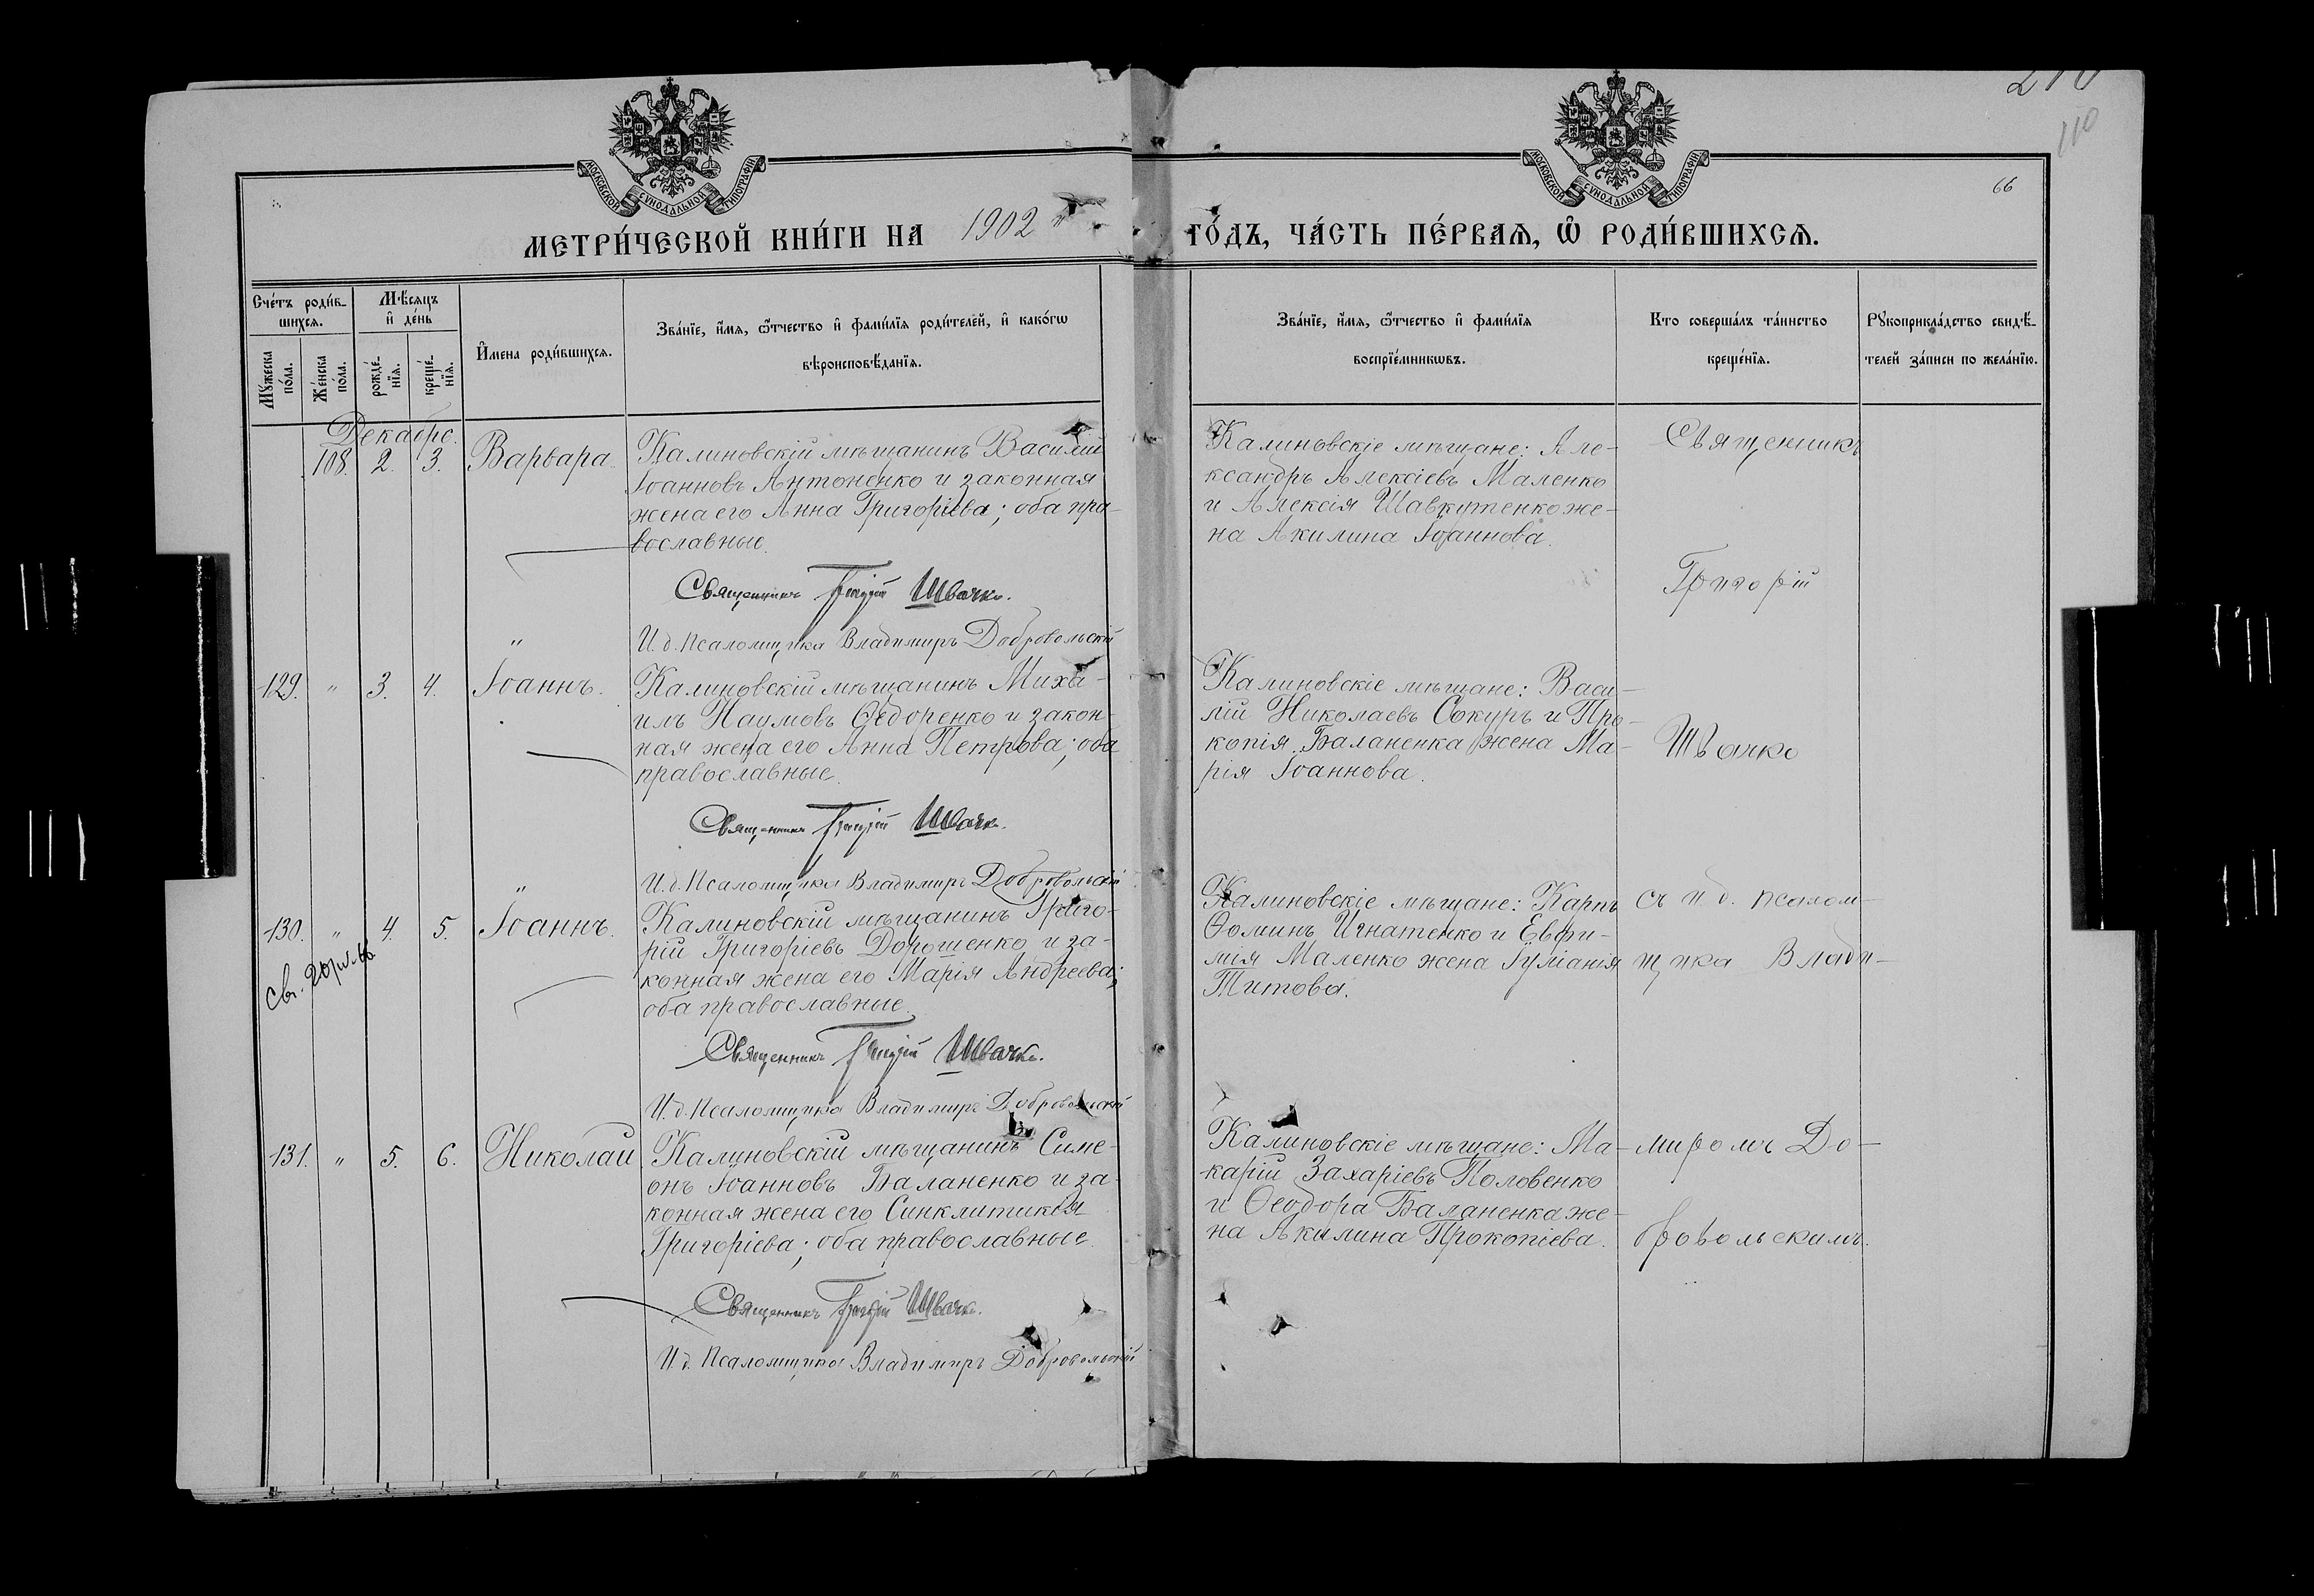 210
110
66
МОСКОВСКОЙ СѴНОДАЛЬНОЙ ТИПОГРАФІИ
МОСКОВСКОЙ СѴНОДАЛЬНОЙ ТИПОГРАФІИ
МЕТРИ́ЧЕСКОЙ КНИ́ГИ НА 1902 й
ГО́ДЪ, ЧА́СТЬ ПЕ́РВАѦ, Ѡ҆ РОДИ́ВШИХСѦ.
Сче́тъ роди́в-
шихсѧ.
Мѣ́сѧцъ
и҆ де́нь
Мꙋ́жеска
по́ла.
Же́нска
по́ла.
рожде́-
нїѧ.
креще́-
нїѧ.
И҆мена роди́вшихсѧ.
Зва́нїе, и҆́мѧ, ѻ҆́тчество и҆ фамі́лїѧ роди́телей, и҆ како́гѡ
вѣроисповѣ́данїѧ.
Зва́нїе, и҆́мѧ, ѻ҆́тчество и҆ фамі́лїѧ
воспрїе́мникѡвъ.
Кто соверша́лъ та́инство
креще́нїѧ.
Рꙋкоприкла́дство свидѣ́-
телей за́писи по жела́нїю.
Декабре.
108. 2. 3. Варвара. Калиновскій мѣщанинъ Василій
Іоанновъ Антоненко и законная
жена его Анна Григоріева; оба пра-
вославные.
Священникъ Григорій Швачко.
И. д. Псаломщика Владимиръ Добровольскій
Калиновскіе мѣщане: Але-
ксандръ Алексіевъ Маленко
и Алексія Шавкутенко же-
на Акилина Іоаннова.
129. " 3. 4. Іоаннъ. Калиновскій мѣщанинъ Миха-
илъ Наумовъ Ѳедоренко и закон-
ная жена его Анна Петрова; оба
православные.
Священникъ Григорій Швачко.
И. д. Псаломщика Владимиръ Добровольскій
Калиновскіе мѣщане: Васи-
лій Николаевъ Сокуръ и Про-
копія Баланенка жена Ма-
рія Іоаннова.
130. " 4. 5. Іоаннъ. Калиновскій мѣщанинъ Григо-
рій Григоріевъ Дорошенко и за-
конная жена его Марія Андреева;
оба православные.
Священникъ Григорій Швачко.
И. д. Псаломщика Владимиръ Добровольскій
Калиновскіе мѣщане: Карпъ
Ѳоминъ Игнатенко и Евфи-
мія Маленко жена Іуліанія
Титова.
131. " 5. 6. Николай Калиновскій мѣщанинъ Симе-
онъ Іоанновъ Баланенко и за-
конная жена его Синклитикія
Григоріева; оба православные.
Священникъ Григорій Швачко.
И. д. Псаломщика Владимиръ Добровольскій
Калиновскіе мѣщане: Ма-
карій Захаріевъ Половенко
и Ѳеодора Баланенка же-
на Акилина Прокопіева.
Священникъ
Григорій
Швачко
съ и. д. псалом-
щика Влади-
миромъ До-
бровольскимъ.